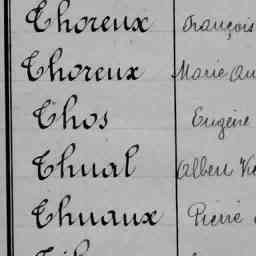 Thoreux François
Thoreux Marie
Thos Eugène
Thual Albert
Thuaux Pierre